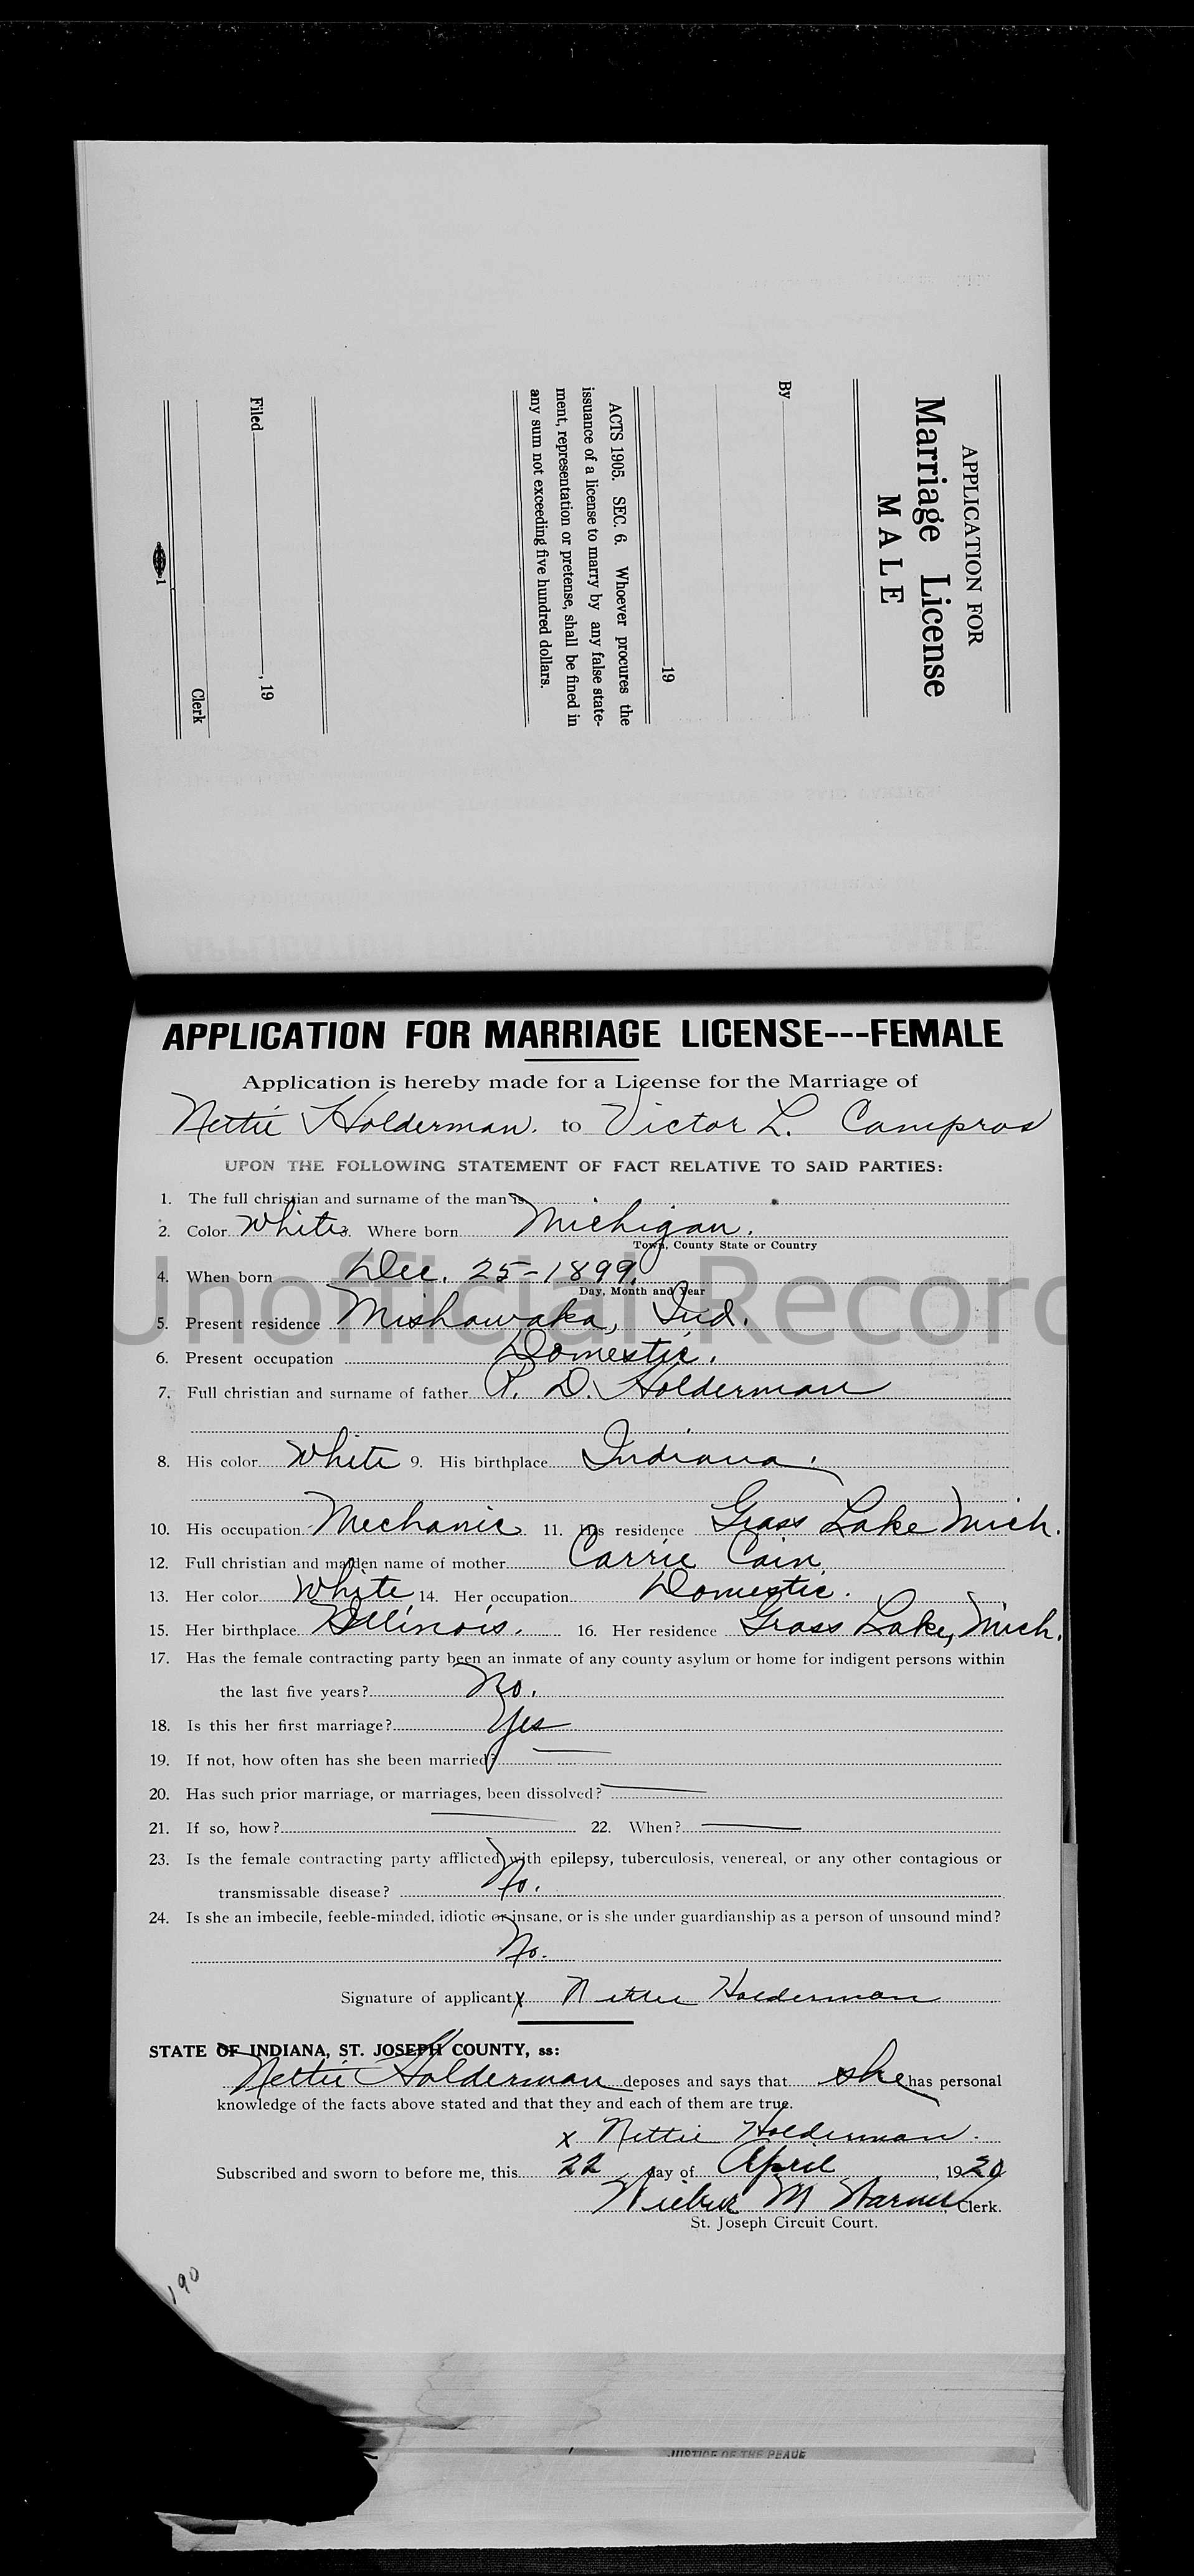 APPLICATION FOR
Marriage License
MALE
By
19
ACTS 1905. SEC. 6. Whoever procures the
issuance of a license to marry by any false state-
ment, representation or pretense, shall be fined in
any sum not exceeding five hundred dollars.
Filed , 19
Clerk
1
APPLICATION FOR MARRIAGE LICENSE---FEMALE
Application is hereby made for a License for the Marriage of
Nettie Holderman. to Victor L. Campros
UPON THE FOLLOWING STATEMENT OF FACT RELATIVE TO SAID PARTIES:
1. The full christian and surname of the man is
2. Color White 3. Where born Michigan.
Town, County State or Country
4. When born Dec. 25-1899.
Day, Month and Year
Unofficial Record
5. Present residence Mishawaka, Ind.
6. Present occupation Domestic.
7. Full christian and surname of father P. D. Holderman
8. His color White 9. His birthplace Indiana.
10. His occupation Mechanic 11. His residence Grass Lake Mich.
12. Full christian and maiden name of mother Carrie Cain
13. Her color White 14. Her occupation Domestic.
15. Her birthplace Illinois. 16. Her residence Grass Lake, Mich.
17. Has the female contracting party been an inmate of any county asylum or home for indigent persons within
the last five years? No.
18. Is this her first marriage? Yes
19. If not, how often has she been married?
20. Has such prior marriage, or marriages, been dissolved?
21. If so, how? 22. When?
23. Is the female contracting party afflicted with epilepsy, tuberculosis, venereal, or any other contagious or
transmissable disease? No.
24. Is she an imbecile, feeble-minded, idiotic or insane, or is she under guardianship as a person of unsound mind?
No.
Signature of applicant X Nettie Holderman
STATE OF INDIANA, ST. JOSEPH COUNTY, ss:
Nettie Holderman deposes and says that she has personal
knowledge of the facts above stated and that they and each of them are true.
x Nettie Holderman.
Subscribed and sworn to before me, this 22 day of April , 1920
Wilbur M Warner Clerk.
St. Joseph Circuit Court.
190
JUSTICE OF THE PEACE